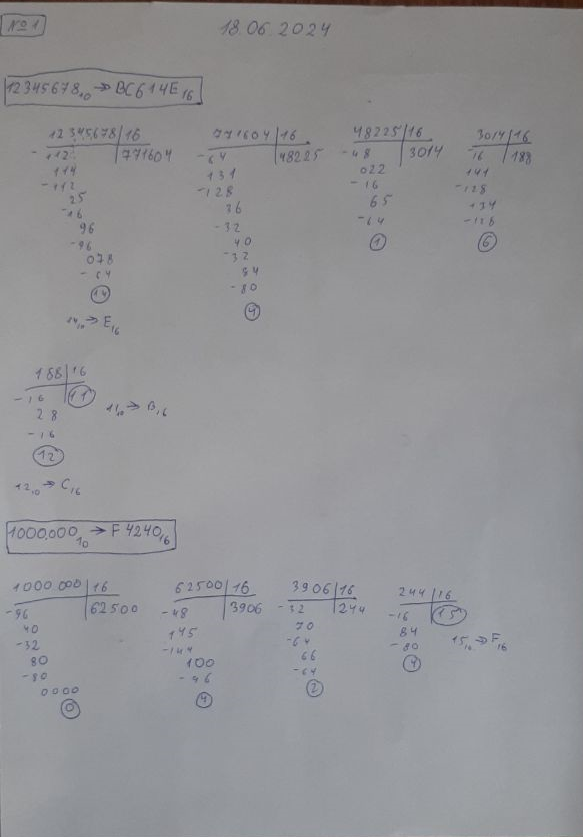 №1
18.06.2024
12345678₁₀ → BC614E₁₆
12345678 | 16
-112 | 771604
114
-112
25
-16
96
-96
078
-64
14
14₁₀ → E₁₆
771604 | 16
-64 | 48225
131
-128
36
-32
40
-32
84
-80
4
48225 | 16
-48 | 3014
022
-16
65
-64
1
3014 | 16
16 | 188
141
-128
134
-128
6
188 | 16
-16 | 11
28
-16
12
11₁₀ → B₁₆
12₁₀ → C₁₆
1000.000₁₀ → F4240₁₆
1000.000 | 16
-96 | 62500
40
-32
80
-80
0000
0
62500 | 16
-48 | 3906
145
-144
100
-96
4
3906 | 16
-32 | 244
70
-64
66
-64
2
244 | 16
-16 | 15
84
-80
4
15₁₀ → F₁₆